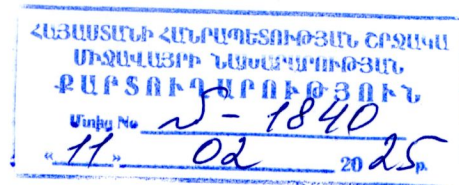 ՀԱՅԱՍՏԱՆԻ ՀԱՆՐԱՊԵՏՈՒԹՅԱՆ ՇՐՋԱԿԱ
ՄԻՋԱՎԱՅՐԻ ՆԱԽԱՐԱՐՈՒԹՅԱՆ
ՔԱՐՏՈՒՂԱՐՈՒԹՅՈՒՆ
Մտից No Մ - 1840
« 11 » 02 2025թ.